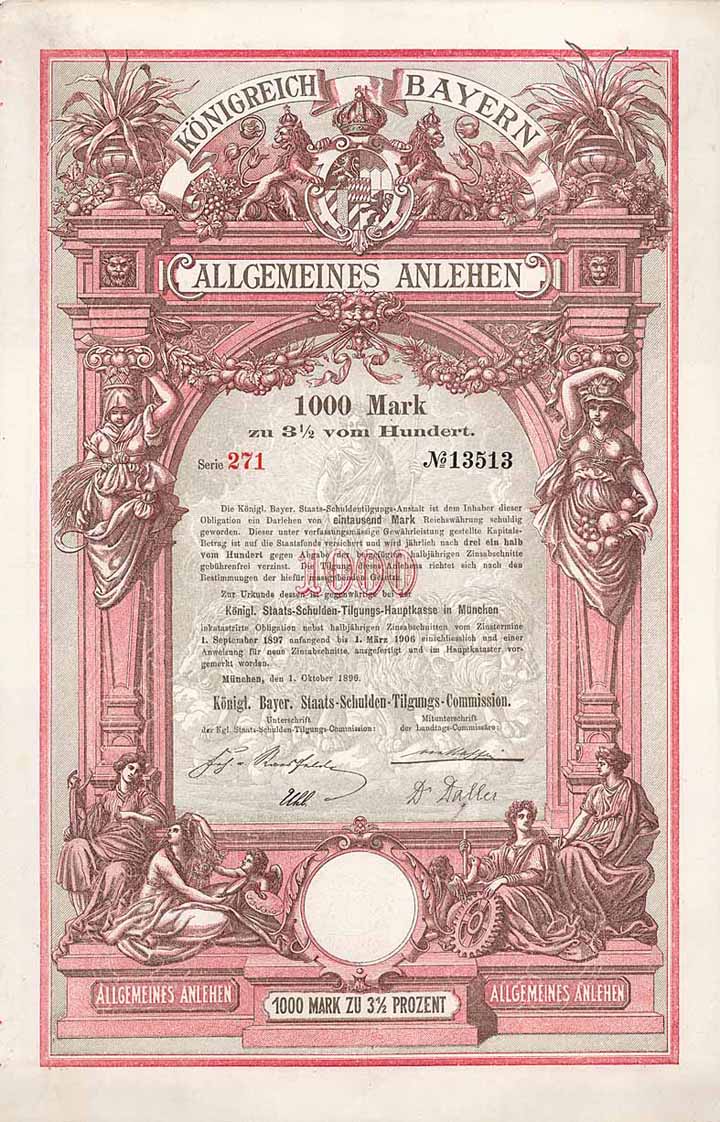 KÖNIGREICH BAYERN
ALLGEMEINES ANLEHEN
1000 Mark
zu 3½ vom Hundert.
Serie 271 № 13513
Die Königl. Bayer. Staats-Schuldentilgungs-Anstalt ist dem Inhaber dieser
Obligation ein Darlehen von eintausend Mark Reichswährung schuldig
geworden. Dieser unter verfassungsmässige Gewährleistung gestellte Kapitals-
Betrag ist auf die Staatsfonds versichert und wird jährlich nach drei ein halb
vom Hundert gegen Abgabe der beigefügten halbjährigen Zinsabschnitte
gebührenfrei verzinst. Die Tilgung dieses Anlehens richtet sich nach den
Bestimmungen der hiefür massgebenden Gesetze.
1000
Zur Urkunde dessen ist gegenwärtige bei der
Königl. Staats-Schulden-Tilgungs-Hauptkasse in München
inkatastrirte Obligation nebst halbjährigen Zinsabschnitten vom Zinstermine
1. September 1897 anfangend bis 1. März 1906 einschliesslich und einer
Anweisung für neue Zinsabschnitte, ausgefertigt und im Hauptkataster vor-
gemerkt worden.
München, den 1. Oktober 1896.
Königl. Bayer. Staats-Schulden-Tilgungs-Commission.
Unterschrift Mitunterschrift
der Kgl. Staats-Schulden-Tilgungs-Commission: der Landtags-Commissäre:
Uhl. Dr Daller
ALLGEMEINES ANLEHEN
1000 MARK ZU 3½ PROZENT
ALLGEMEINES ANLEHEN